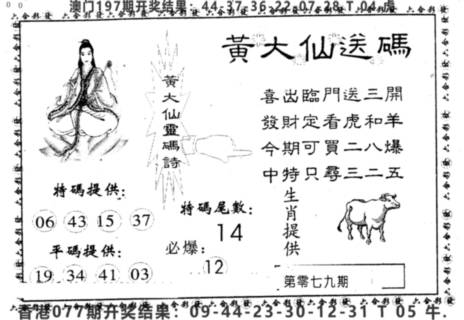 澳门197期开奖结果：44-37-36-22-07-28 T 04 虎
黃大仙送碼
黃大仙靈碼詩
喜出臨門送三開
發財定看虎和羊
今期可買二八爆
中特只尋三二五
特碼提供:
06 43 15 37
平碼提供:
19 34 41 03
特碼尾數:
14
必爆:
12
生肖提供
第零七九期
香港077期开奖结果：09-44-23-30-12-31 T 05 牛.